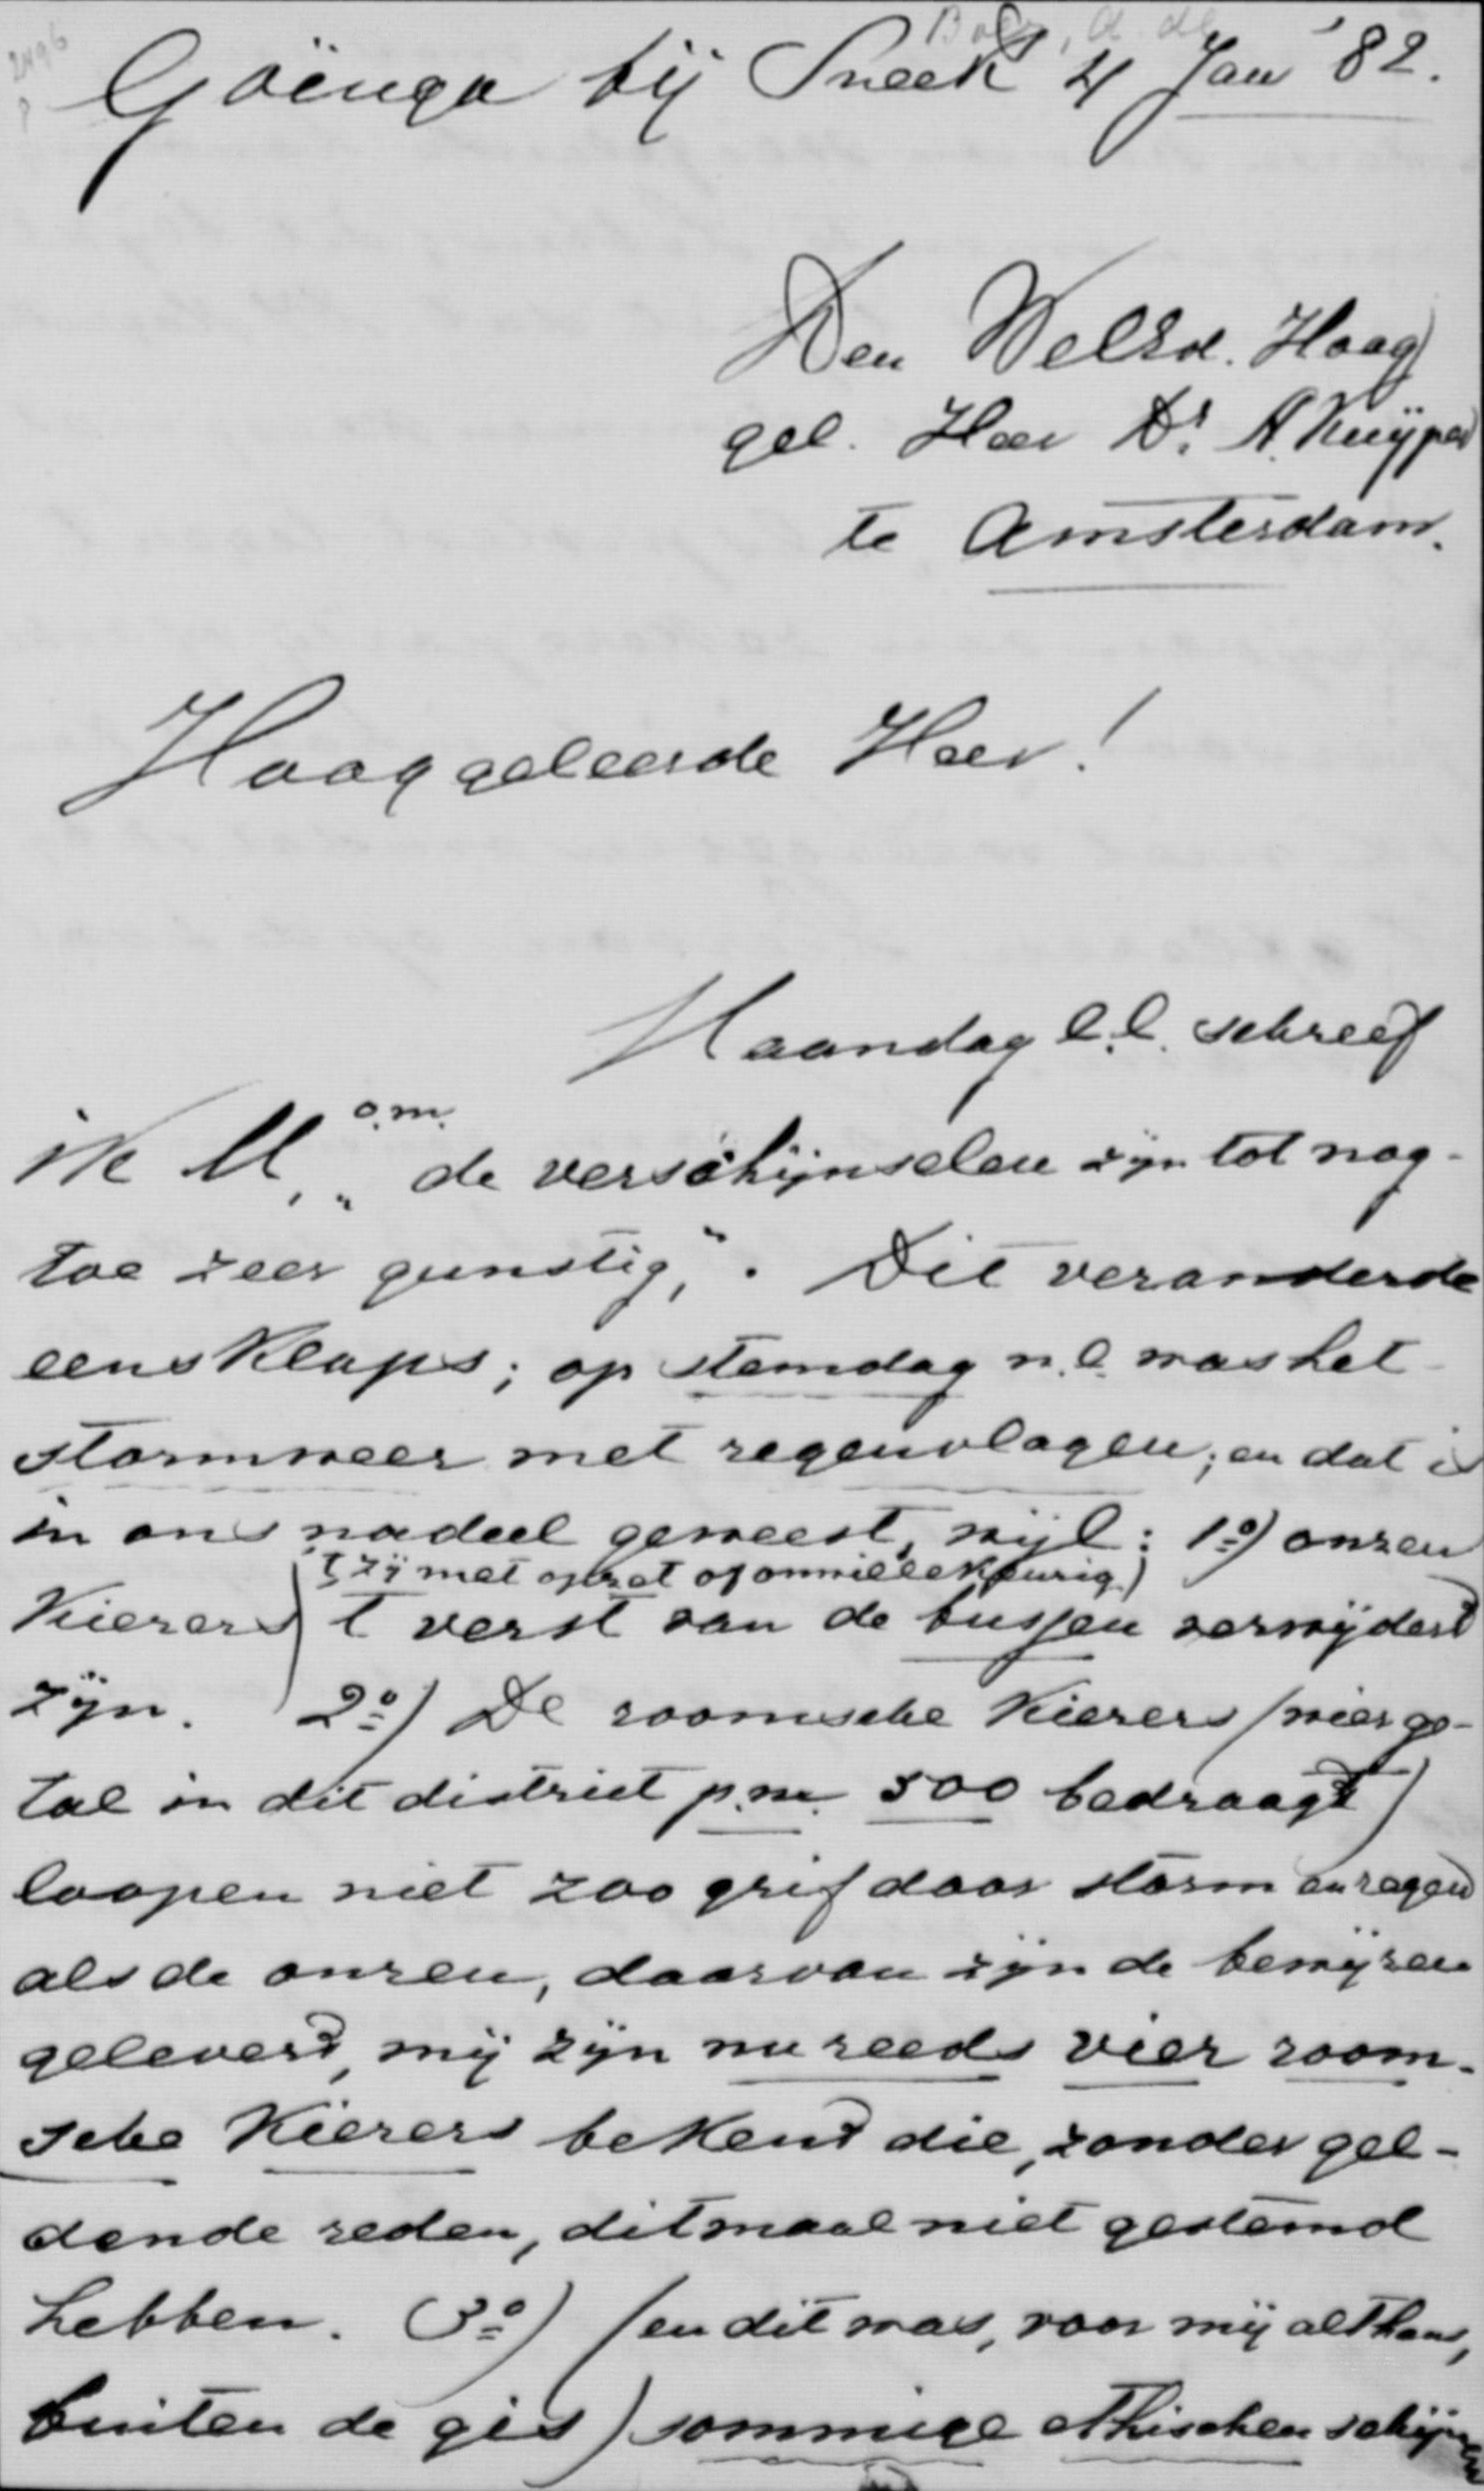 2496
Goïnga bij Sneek 4 Jan '82.
Den WelEd. Hoog
gel. Heer Dr. A. Kuijper
te Amsterdam.
Hooggeleerde Heer!
Maandag l.l. schreef
ik U, o.m. „de verschijnselen zijn tot nog-
toe zeer gunstig,". Dit veranderde
eensklaps; op stemdag n.l. was het
stormweer met regenvlagen; en dat is
in ons nadeel geweest, wijl: 1o) onzen
('t zij met opzet of onwillekeurig)
Kiezers 't verst van de bussen verwijderd
zijn. 2o) De roomsche Kiezers (wier ge-
tal in dit district p.m. 500 bedraagt)
loopen niet zoo grif door storm en regen
als de onzen, daarvan zijn de bewijzen
geleverd, mij zijn nu reeds vier room-
sche Kiezers bekend die, zonder gel-
dende reden, ditmaal niet gestemd
hebben. (3o) (en dit was, voor mij althans,
buiten de gis) sommige ethischen schijnen